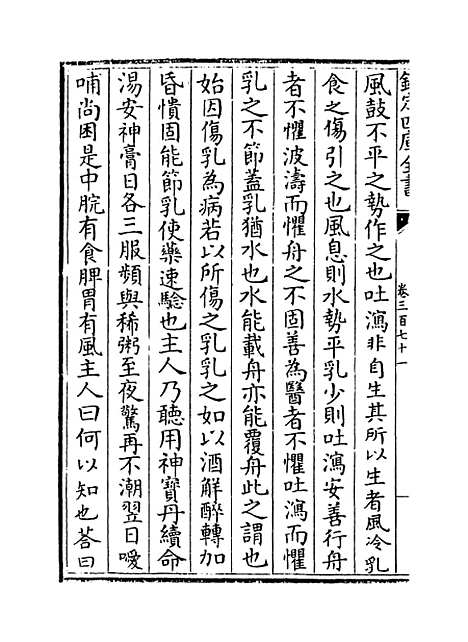 欽定四庫全書
卷三百七十一
風鼓不平之勢作之也吐瀉非自生其所以生者風冷乳
食之傷引之也風息則水勢平乳少則吐瀉安善行舟
者不懼波濤而懼舟之不固善為醫者不懼吐瀉而懼
乳之不節蓋乳猶水也水能載舟亦能覆舟此之謂也
始因傷乳為病若以所傷之乳乳之如以酒解醉轉加
昏憒固能節乳使藥速驗也主人乃聽用神寶丹續命
湯安神膏日各三服頻與稀粥至夜驚再不潮翌日噯
哺尚困是中脘有食脾胃有風主人曰何以知也荅曰